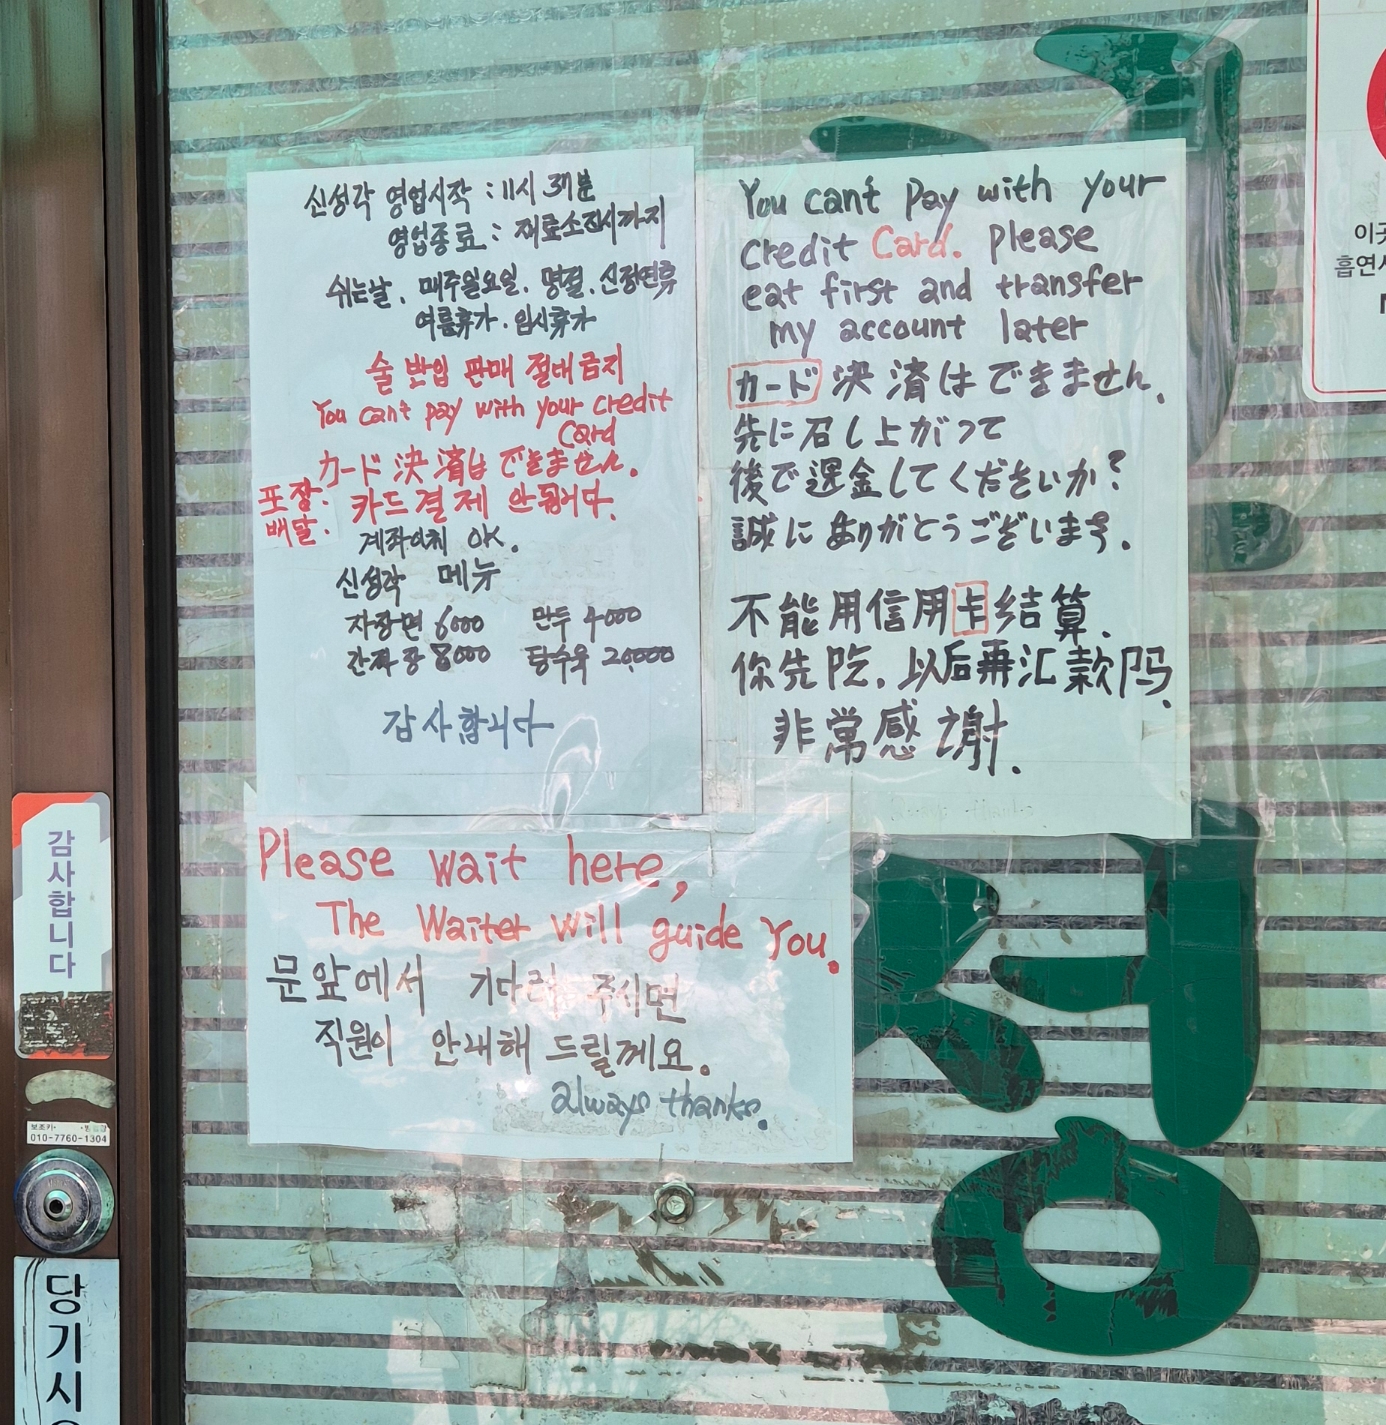 신성각 영업시작 : 11시 37분
영업종료 : 재료소진시까지
쉬는날. 매주일요일. 명절. 신정연휴
여름휴가. 임시휴가
술 반입 판매 절대금지
You can't pay with your credit
Card
カード 決済は できません.
포장. 카드결제 안됩니다.
배달.
계좌이체 OK.
신성각 메뉴
자장면 6000 만두 4000
간짜장 8000 탕수육 20,000
감사합니다
You can't pay with your
credit Card. please
eat first and transfer
my account later
カード 決済は できません.
先に召し上がって
後で送金してくださいか?
誠に ありがとうございます.
不能用信用卡结算.
你先吃. 以后再汇款吗.
非常感谢.
Please wait here,
The Waiter will guide You.
문앞에서 기다려 주시면
직원이 안내해 드릴께요.
always thanks.
감사합니다
010-7760-1304
당기시
이곳
흡연
정